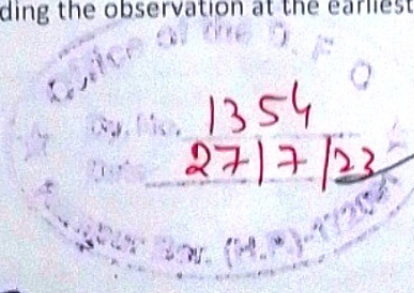 ding the observation at the earliest
Office of the D.F.O
Dy. No. 1354
27/7/23
(H.P)-